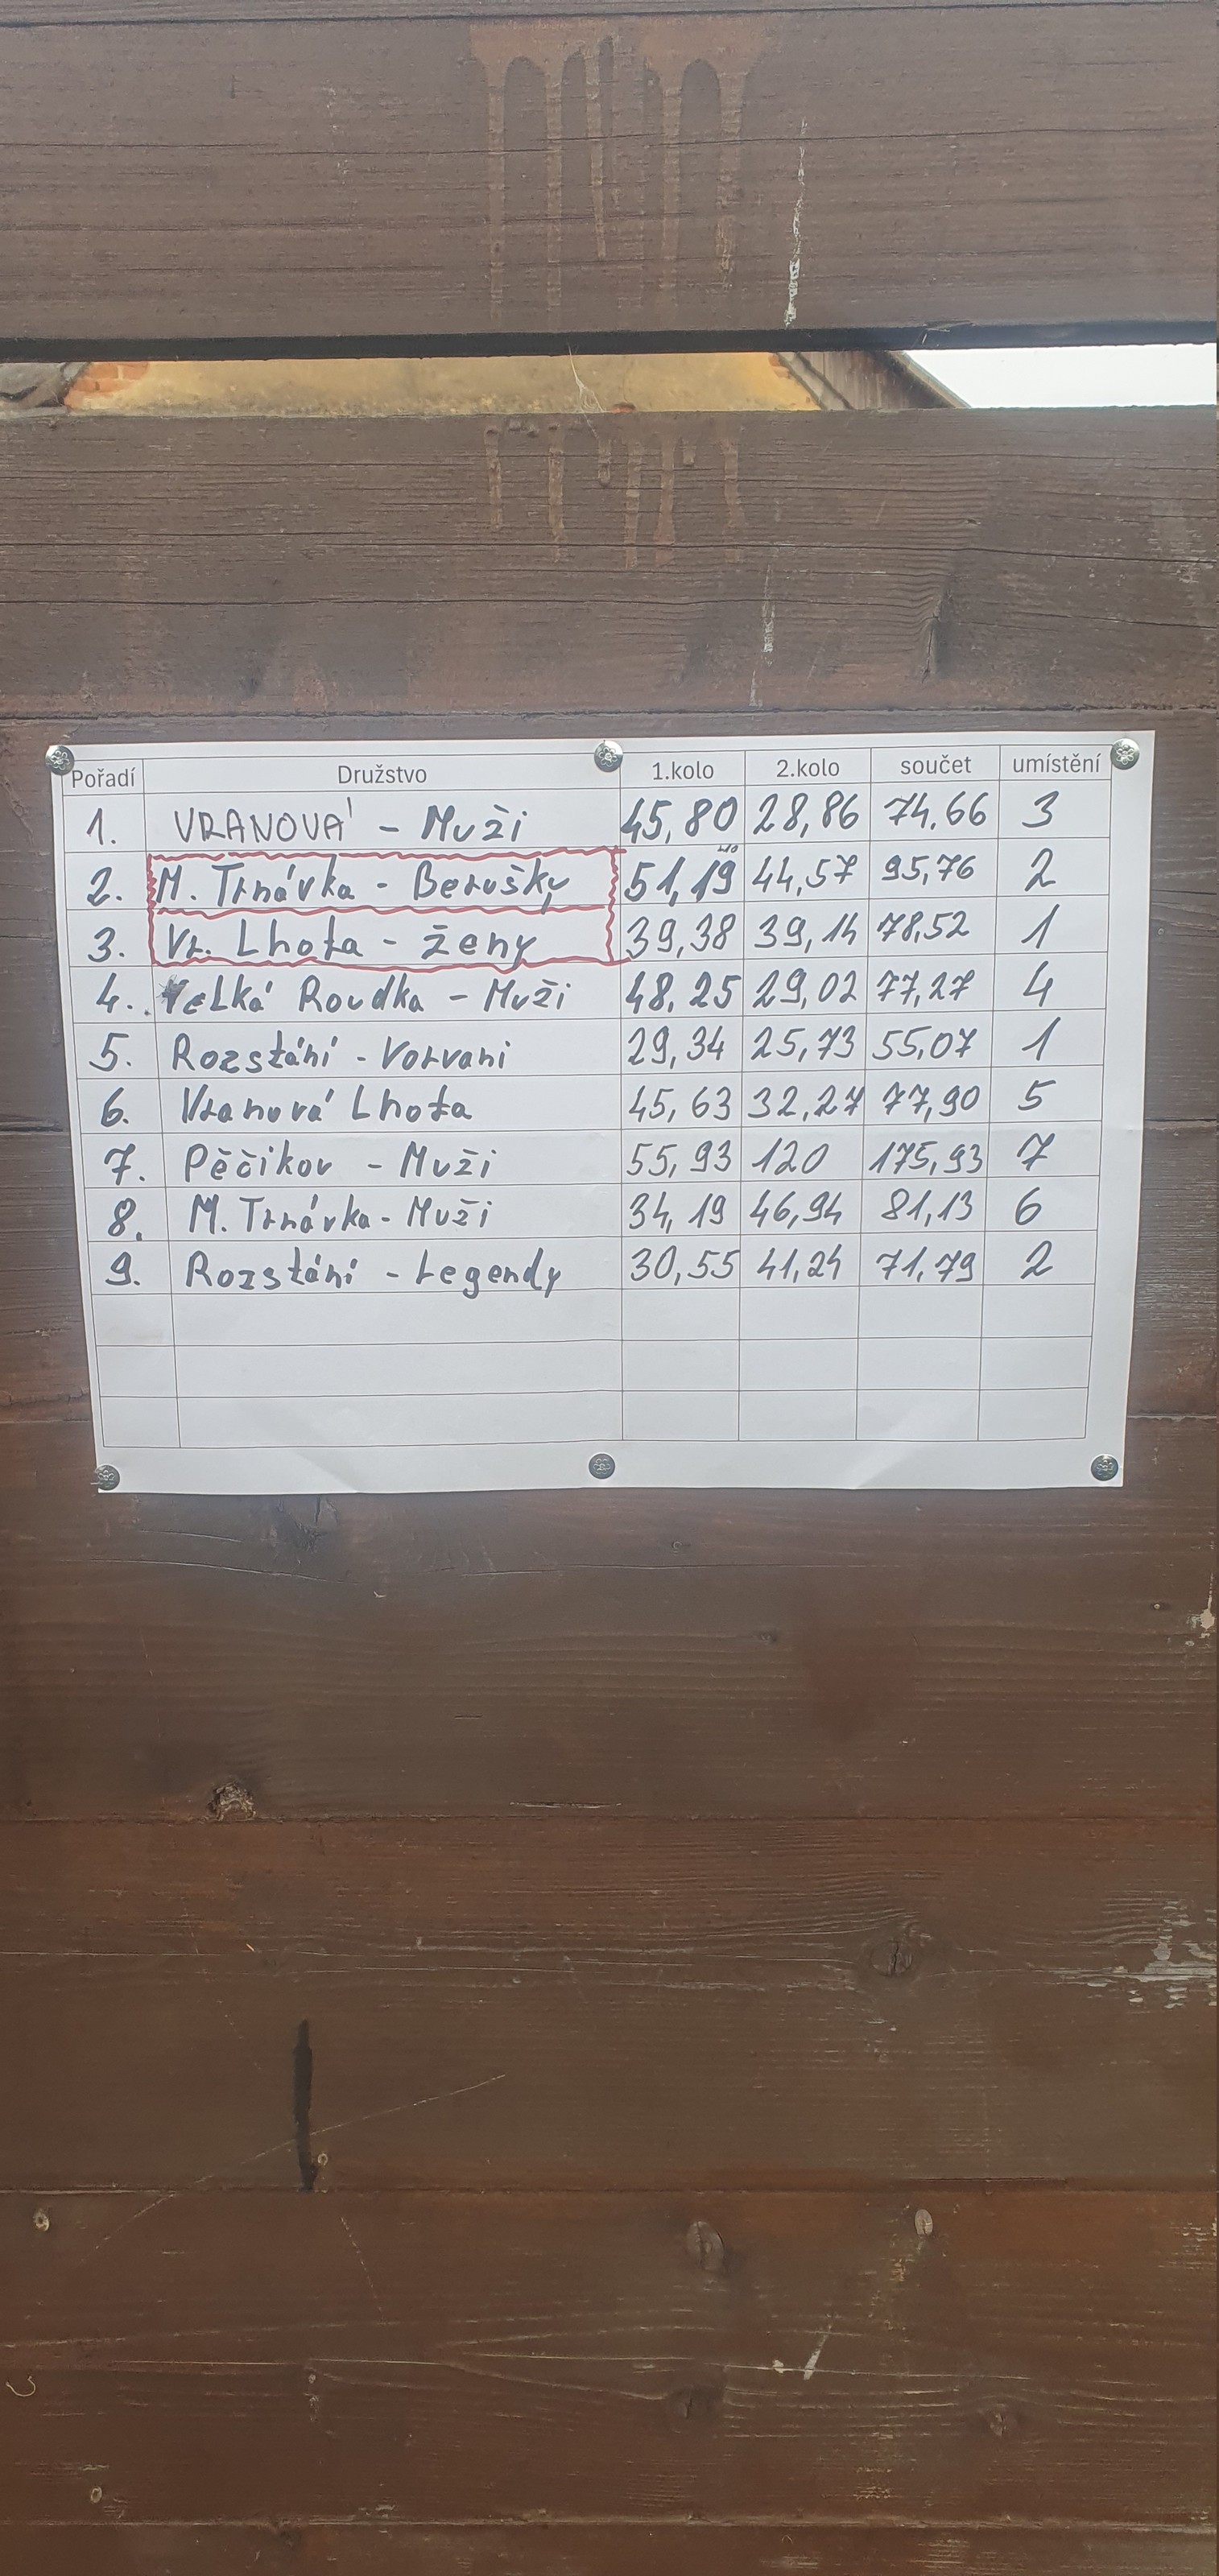 Pořadí Družstvo 1.kolo 2.kolo součet umístění
1. VRANOVÁ - Muži 45,80 28,86 74,66 3
2. M. Trnávka - Berušky 51,19 44,57 95,76 2
3. Vr. Lhota - ženy 39,38 39,14 78,52 1
4. Velká Roudka - Muži 48,25 29,02 77,27 4
5. Rozstání - Vorvani 29,34 25,73 55,07 1
6. Vranová Lhota 45,63 32,27 77,90 5
7. Pěčíkov - Muži 55,93 120 175,93 7
8. M. Trnávka - Muži 34,19 46,94 81,13 6
9. Rozstání - Legendy 30,55 41,24 71,79 2